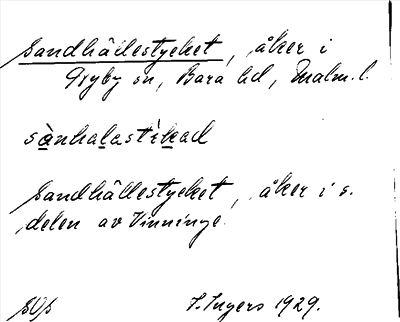 Sandhällestycket, åker i
Gryby sn, Bara hd, Malm. l.
sànhalastìkad
Sandhällestycket, åker i s.
delen av Vinninge.
I. Ingers 1929.